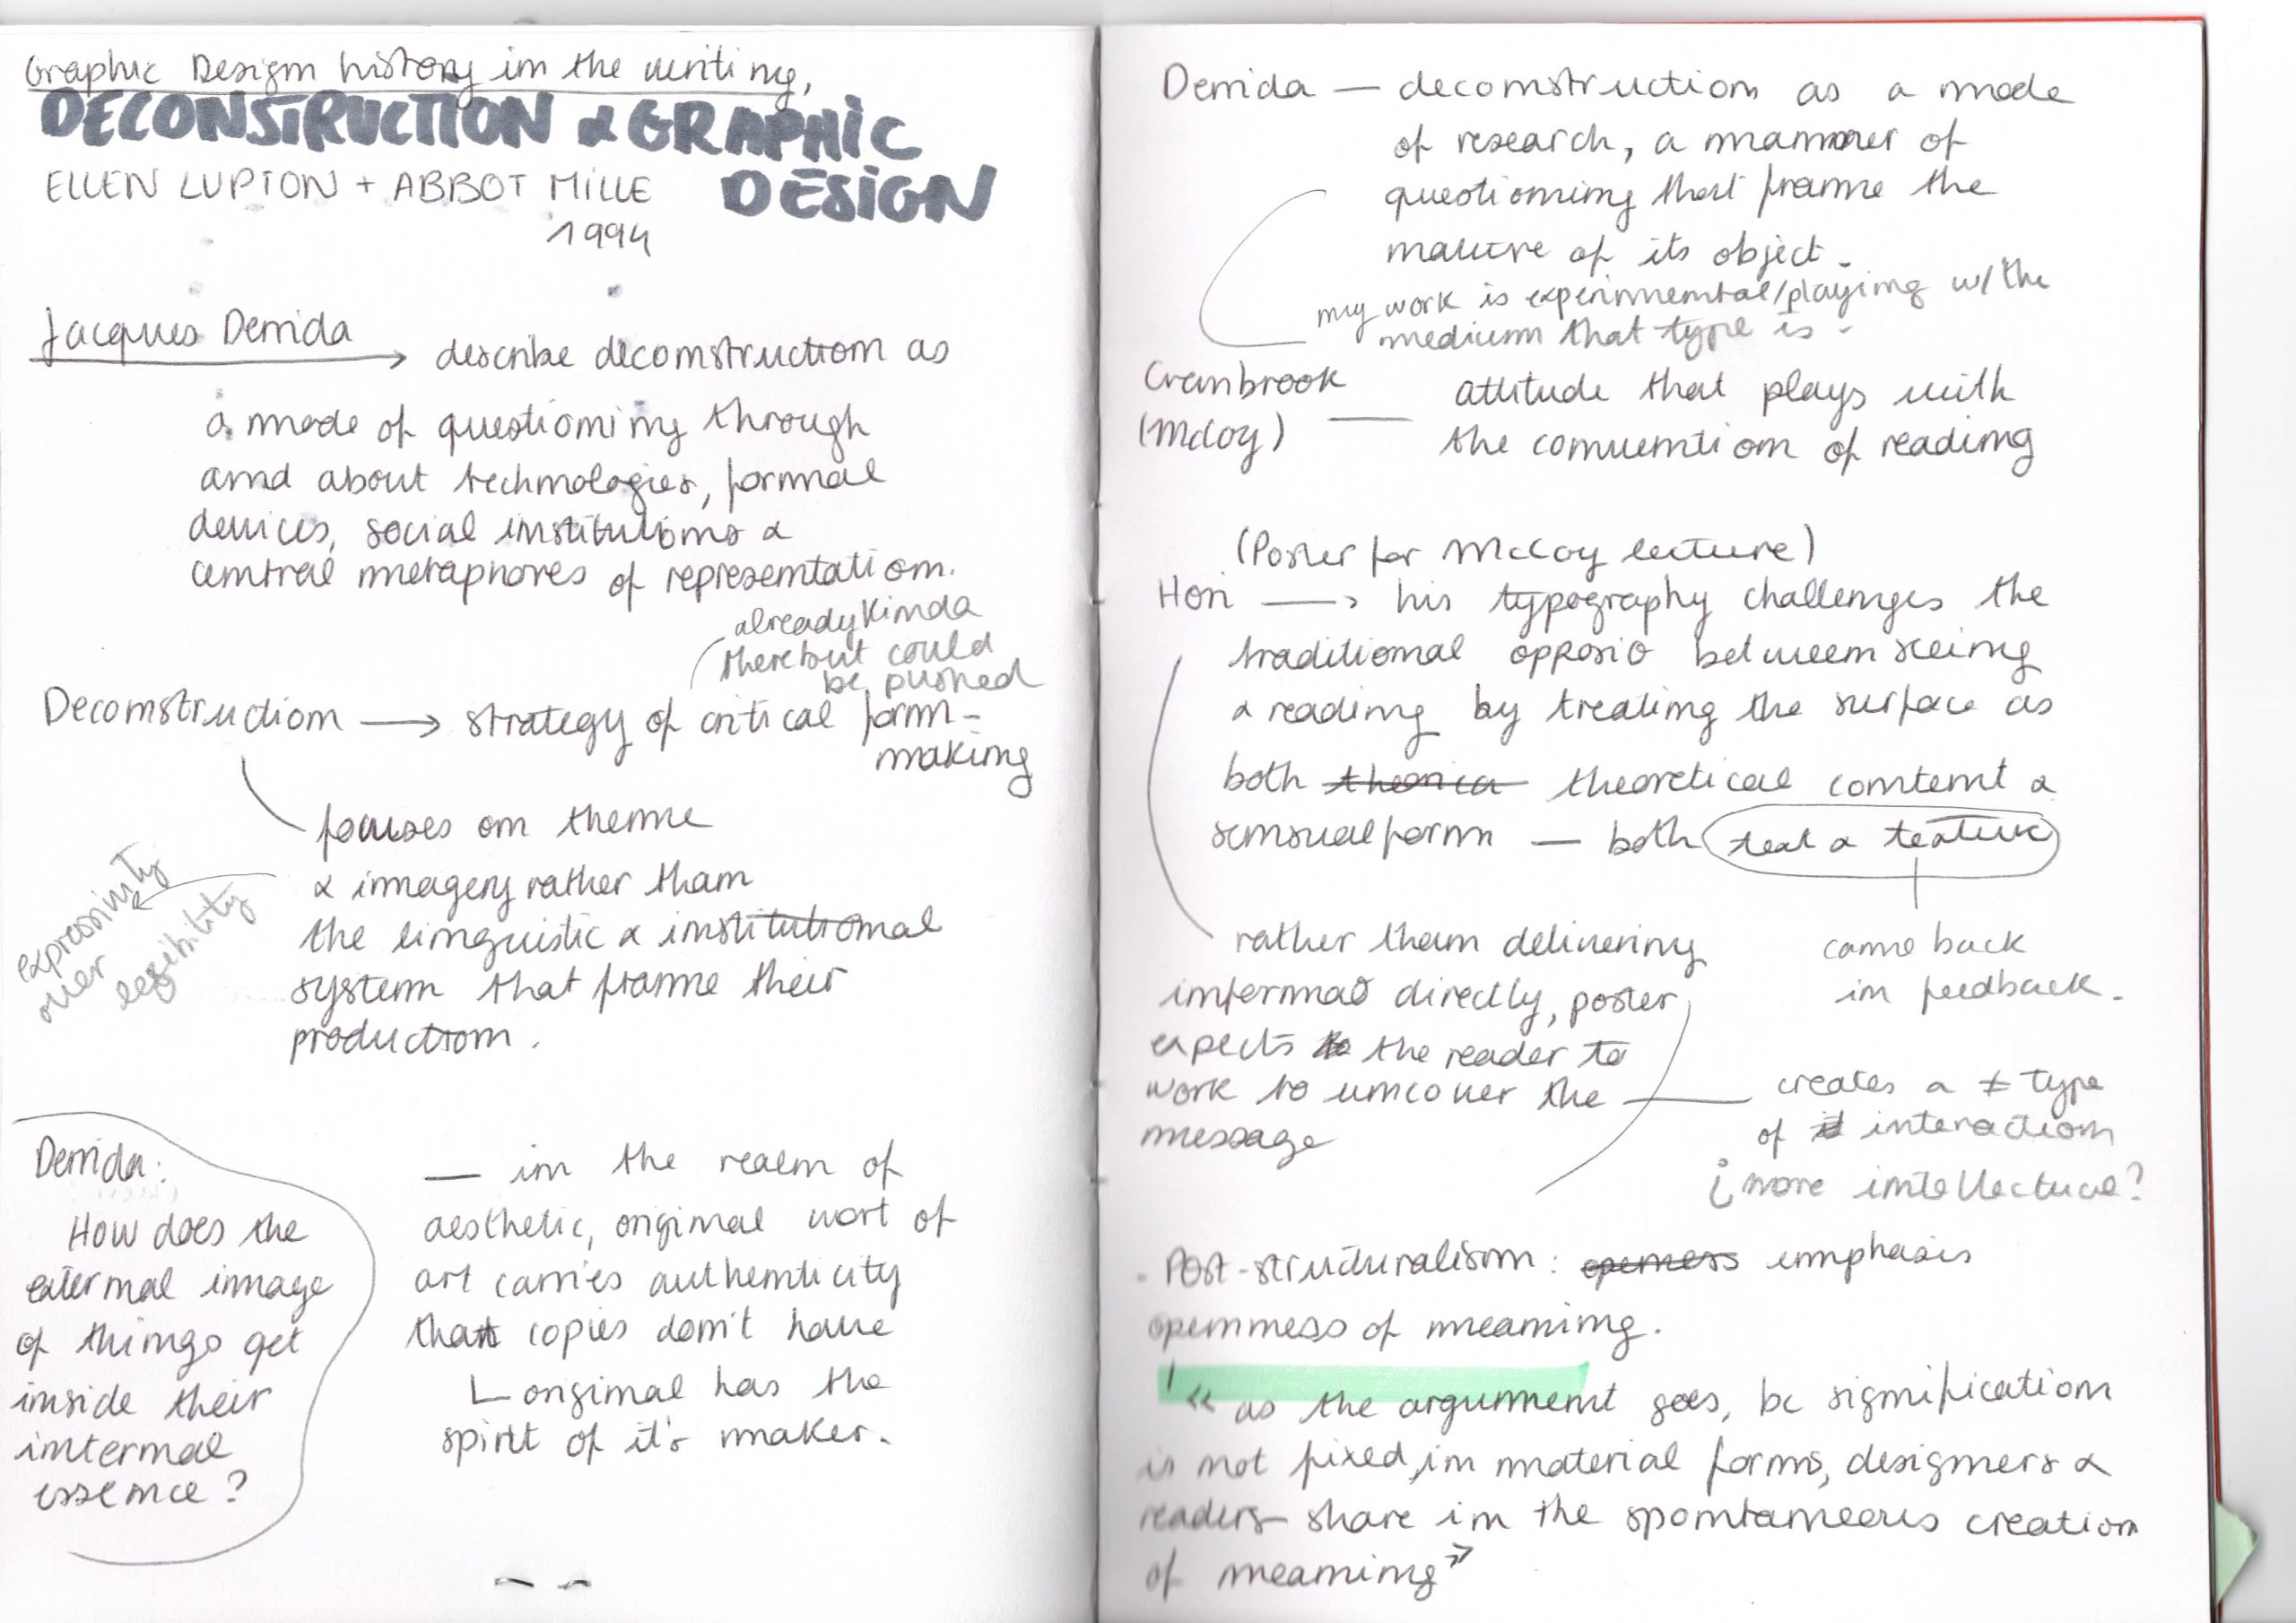 Graphic Design history in the writing,
DECONSTRUCTION & GRAPHIC
DESIGN
ELLEN LUPTON + ABBOT MILLE
1994
Jacques Derrida
→ describe deconstruction as
a mode of questioning through
and about technologies, formal
devices, social institutions &
central metaphores of representation.
already kinda
there but could
be pushed
Deconstruction → strategy of critical form-
making
focuses on theme
& imagery rather than
the linguistic & institutional
system that frame their
production.
expressivity
over
legibility
Derrida:
How does the
external image
of things get
inside their
internal
essence?
— in the realm of
aesthetic, original wort of
art carries authenticity
that copies don't have
original has the
spirit of it's maker.
Derrida — deconstruction as a mode
of research, a manner of
questioning that frame the
nature of its object.
my work is experimental/playing w/ the
medium that type is.
Cranbrook
(McCoy) — attitude that plays with
the convention of reading
(Poster for McCoy lecture)
Hori → his typography challenges the
traditional opposi° between seeing
& reading by treating the surface as
both theorica theoretical content &
sensual form — both text & texture
came back
in feedback.
rather than delivering
informa° directly, poster
expects the reader to
work to uncover the
message
creates a ≠ type
of interaction
¿more intellectual?
. Post-structuralism: openess emphasis
openness of meaning.
« as the argument goes, bc signification
is not fixed, in material forms, designers &
readers share in the spontaneous creation
of meaning »